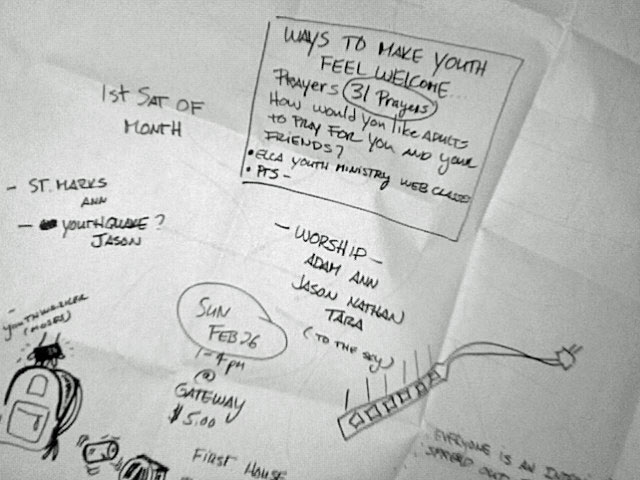 WAYS TO MAKE YOUTH
FEEL WELCOME...
PRAYERS 31 Prayers
HOW WOULD YOU LIKE ADULTS
TO PRAY FOR YOU AND YOUR
FRIENDS?
• ELCA YOUTH MINISTRY WEB CLASSES
• PTS -
1st SAT OF
MONTH
- ST. MARKS
ANN
- YOUTHQUAKE?
JASON
- WORSHIP -
ADAM ANN
JASON NATHAN
TARA
(TO THE SKY)
SUN
FEB 26
1-4 PM
@
GATEWAY
$5.00
- YOUTHWORKER
(MOSES)
FIRST HOUSE
EVERYONE IS AN
SPREAD OUT